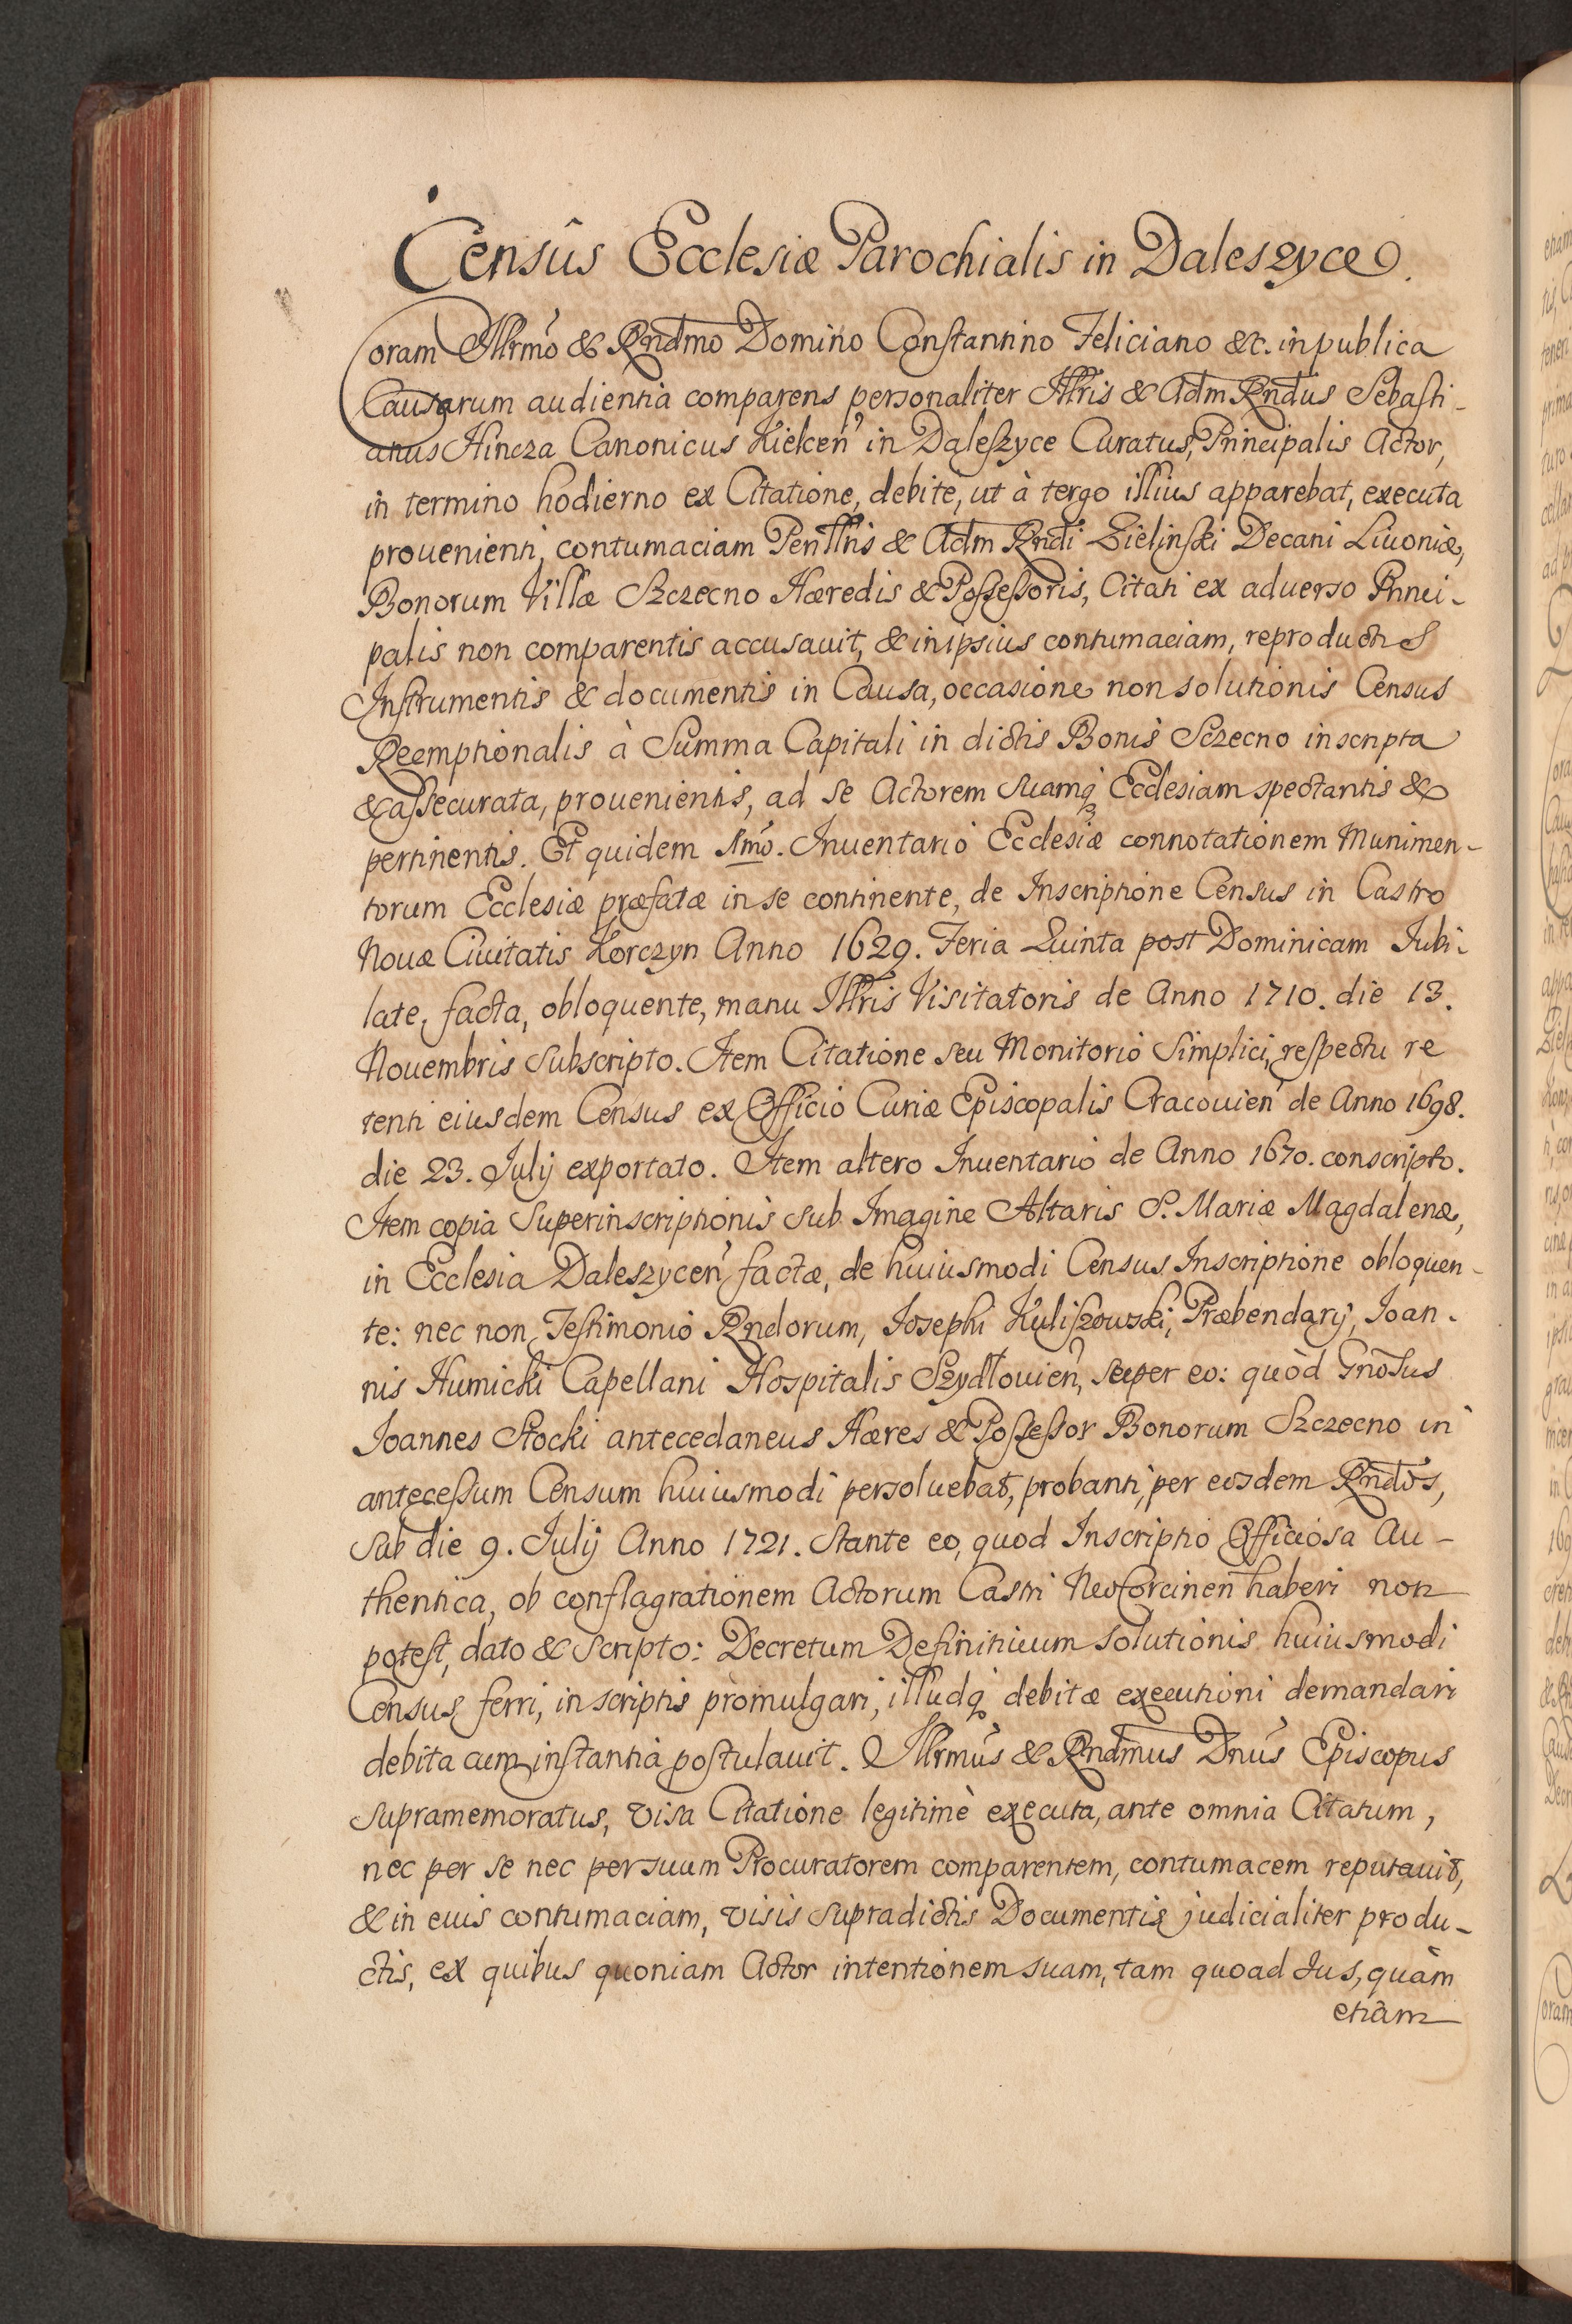 Censûs Ecclesiæ Parochialis in Daleszyce.
Coram Illrmo & Rndmo Domino Constantino Feliciano &c. in publica
Causarum audientia comparens personaliter Illris & Adm Rndus Sebasti-
anus Hincza Canonicus Kielcen in Daleszyce Curatus, Principalis Actor,
in termino hodierno ex Citatione, debitè, ut à tergo illius apparebat, executa
prouenienti, contumaciam Perillris & Adm Rndi Zielinski Decani Liuoniæ,
Bonorum Villæ Szczecno Hæredis & Possessoris, Citati ex aduerso Princi-
palis non comparentis accusauit, & in ipsius contumaciam, reproductis
Instrumentis & documentis in Causa, occasione non solutionis Census
Reemptionalis à Summa Capitali in dictis Bonis Sczecno inscripta
& assecurata, prouenientis, ad se Actorem suamq Ecclesiam spectantis &
pertinentis. Et quidem 1mo. Inuentario Ecclesiæ connotationem Munimen-
torum Ecclesiæ præfatæ in se continente, de Inscriptione Census in Castro
Nouæ Ciuitatis Korczyn Anno 1629. Feria Quinta post Dominicam Jubi-
late, facta, obloquente, manu Illris Visitatoris de Anno 1710. die 13.
Nouembris subscripto. Item Citatione seu Monitorio Simplici, respectu re
tenti eiusdem Census ex Officio Curiæ Episcopalis Cracouien de Anno 1698.
die 23. Julij exportato. Item altero Inuentario de Anno 1670. conscripto.
Item copia Superinscriptionis sub Imagine Altaris S. Mariæ Magdalenæ,
in Ecclesia Daleszycen factæ, de huiusmodi Census Inscriptione obloquen-
te: nec non Testimonio Rndorum, Josephi Kuliszowski, Præbendarij, Joan-
nis Humicki Capellani Hospitalis Szydłouien, super eo: quòd Gnosus
Joannes Stocki antecedaneus Hæres & Possessor Bonorum Szczecno in
antecessum Censum huiusmodi persoluebat, probanti, per eosdem Rndos,
sub die 9. Julij Anno 1721. Stante eo, quod Inscriptio Officiosa Au-
thentica, ob conflagrationem Actorum Castri Neoforcinen haberi non
potest, dato & scripto: Decretum Definitiuum solutionis huiusmodi
Census ferri, in scriptis promulgari, illudq debitæ executioni demandari
debita cum instantia postulauit. Illrmus & Rndmus Dnus Episcopus
supramemoratus, visa Citatione legitimè executa, ante omnia Citatum,
nec per se nec per suum Procuratorem comparentem, contumacem reputauit,
& in euis contumaciam, visis supradictis Documentis judicialiter produ-
ctis, ex quibus quoniam Actor intentionem suam, tam quoad Jus, quàm
etiam